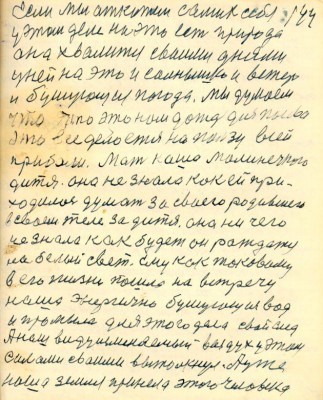 Если мы откажим самих себя, 144
у этом деле на это есть природа
она хвалится своими днями
у ней на это и солнышко и ветер
и бушующая погода. Мы думаем
что это
это все делается на пользу всей
Мать наша
дитя. она не знала как ей при-
ходилось думать за своего родившего
в своем теле за дитя. она ни чего
не знала как будет он рождаться
на белый свет. ему как таковому
в его жизни пошла на встречу
наша энергично бушующая вода
и промыла для этого дела свой след
А наш видуманаемый воздух у этом
силами своими вытолкнул. А уже
наша земля приняла этого человека